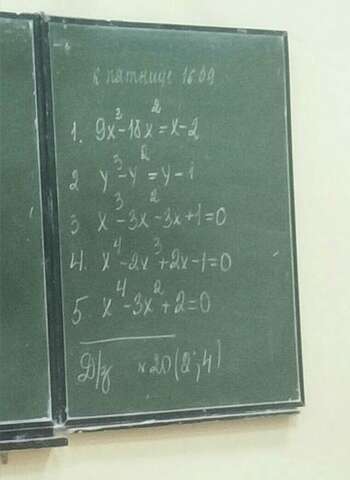 к пятнице 16.09
1. 9x³-18x²=x-2
2 y³-y²=y-1
3 x³-3x²-3x+1=0
4. x⁴-2x³+2x-1=0
5 x⁴-3x²+2=0
Д/з №20(2;4)